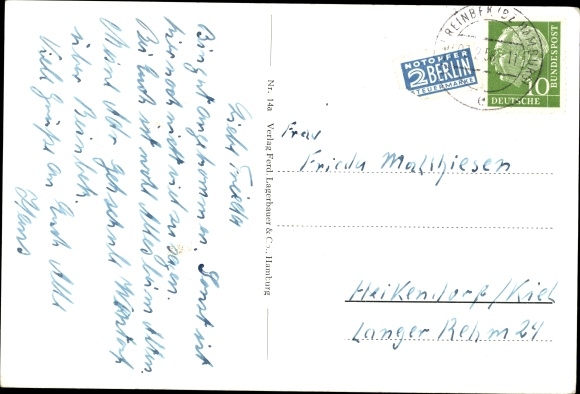 Liebe Frieda
Bin gut angekommen. Sonst ist
hier noch nicht viel zu sagen.
Bei Euch ist wohl Alles beim Alten.
Meine Adr
über Reinbek.
Viele Grüße an Euch Alle
Hans
Nr. 14a Verlag Ferd. Lagerbauer & Co., Hamburg
REINBEK (BZ HAMBURG)
NOTOPFER
2 BERLIN
STEUERMARKE
10
DEUTSCHE
BUNDESPOST
Frau
Frieda Matthiesen
Heikendorf/Kiel
Langer Rehm 24